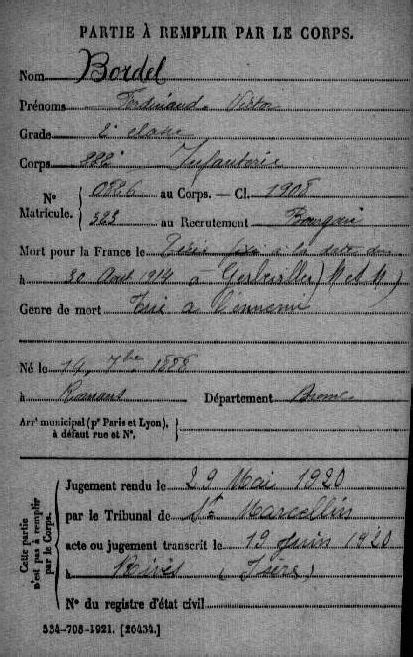 PARTIE À REMPLIR PAR LE CORPS.
Nom Bordel
Prénoms Ferdinand Victor
Grade 2e classe
Corps 222e Infanterie
N° Matricule. 0826 au Corps. — Cl. 1908
323 au Recrutement Bourgoin
Mort pour la France le décès fixé à la date du
à 30 Août 1914 à Gerbéviller (M et M)
Genre de mort Tué à l'ennemi
Né le 14 7bre 1888
à Romans Département Drome
Arrt municipal (pr Paris et Lyon), à défaut rue et N°.
Cette partie n'est pas à remplir par le Corps.
Jugement rendu le 29 Mai 1920
par le Tribunal de St Marcellin
acte ou jugement transcrit le 19 juin 1920
à Rives (Isère)
N° du registre d'état civil
534-708-1921. [26434.]